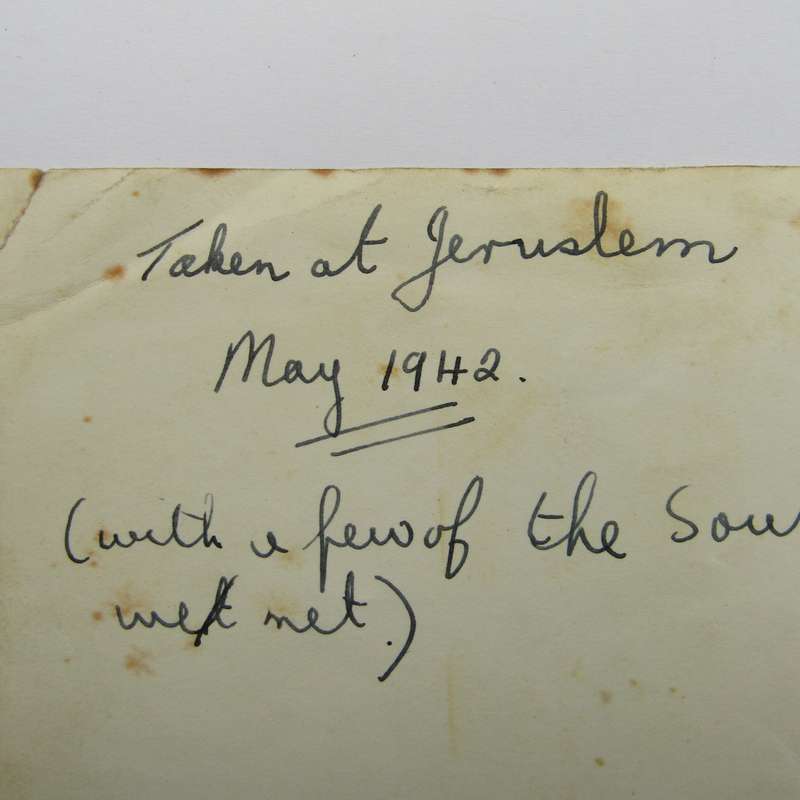 Taken at Jeruslem
May 1942.
(with a few of the Sou
west net.)